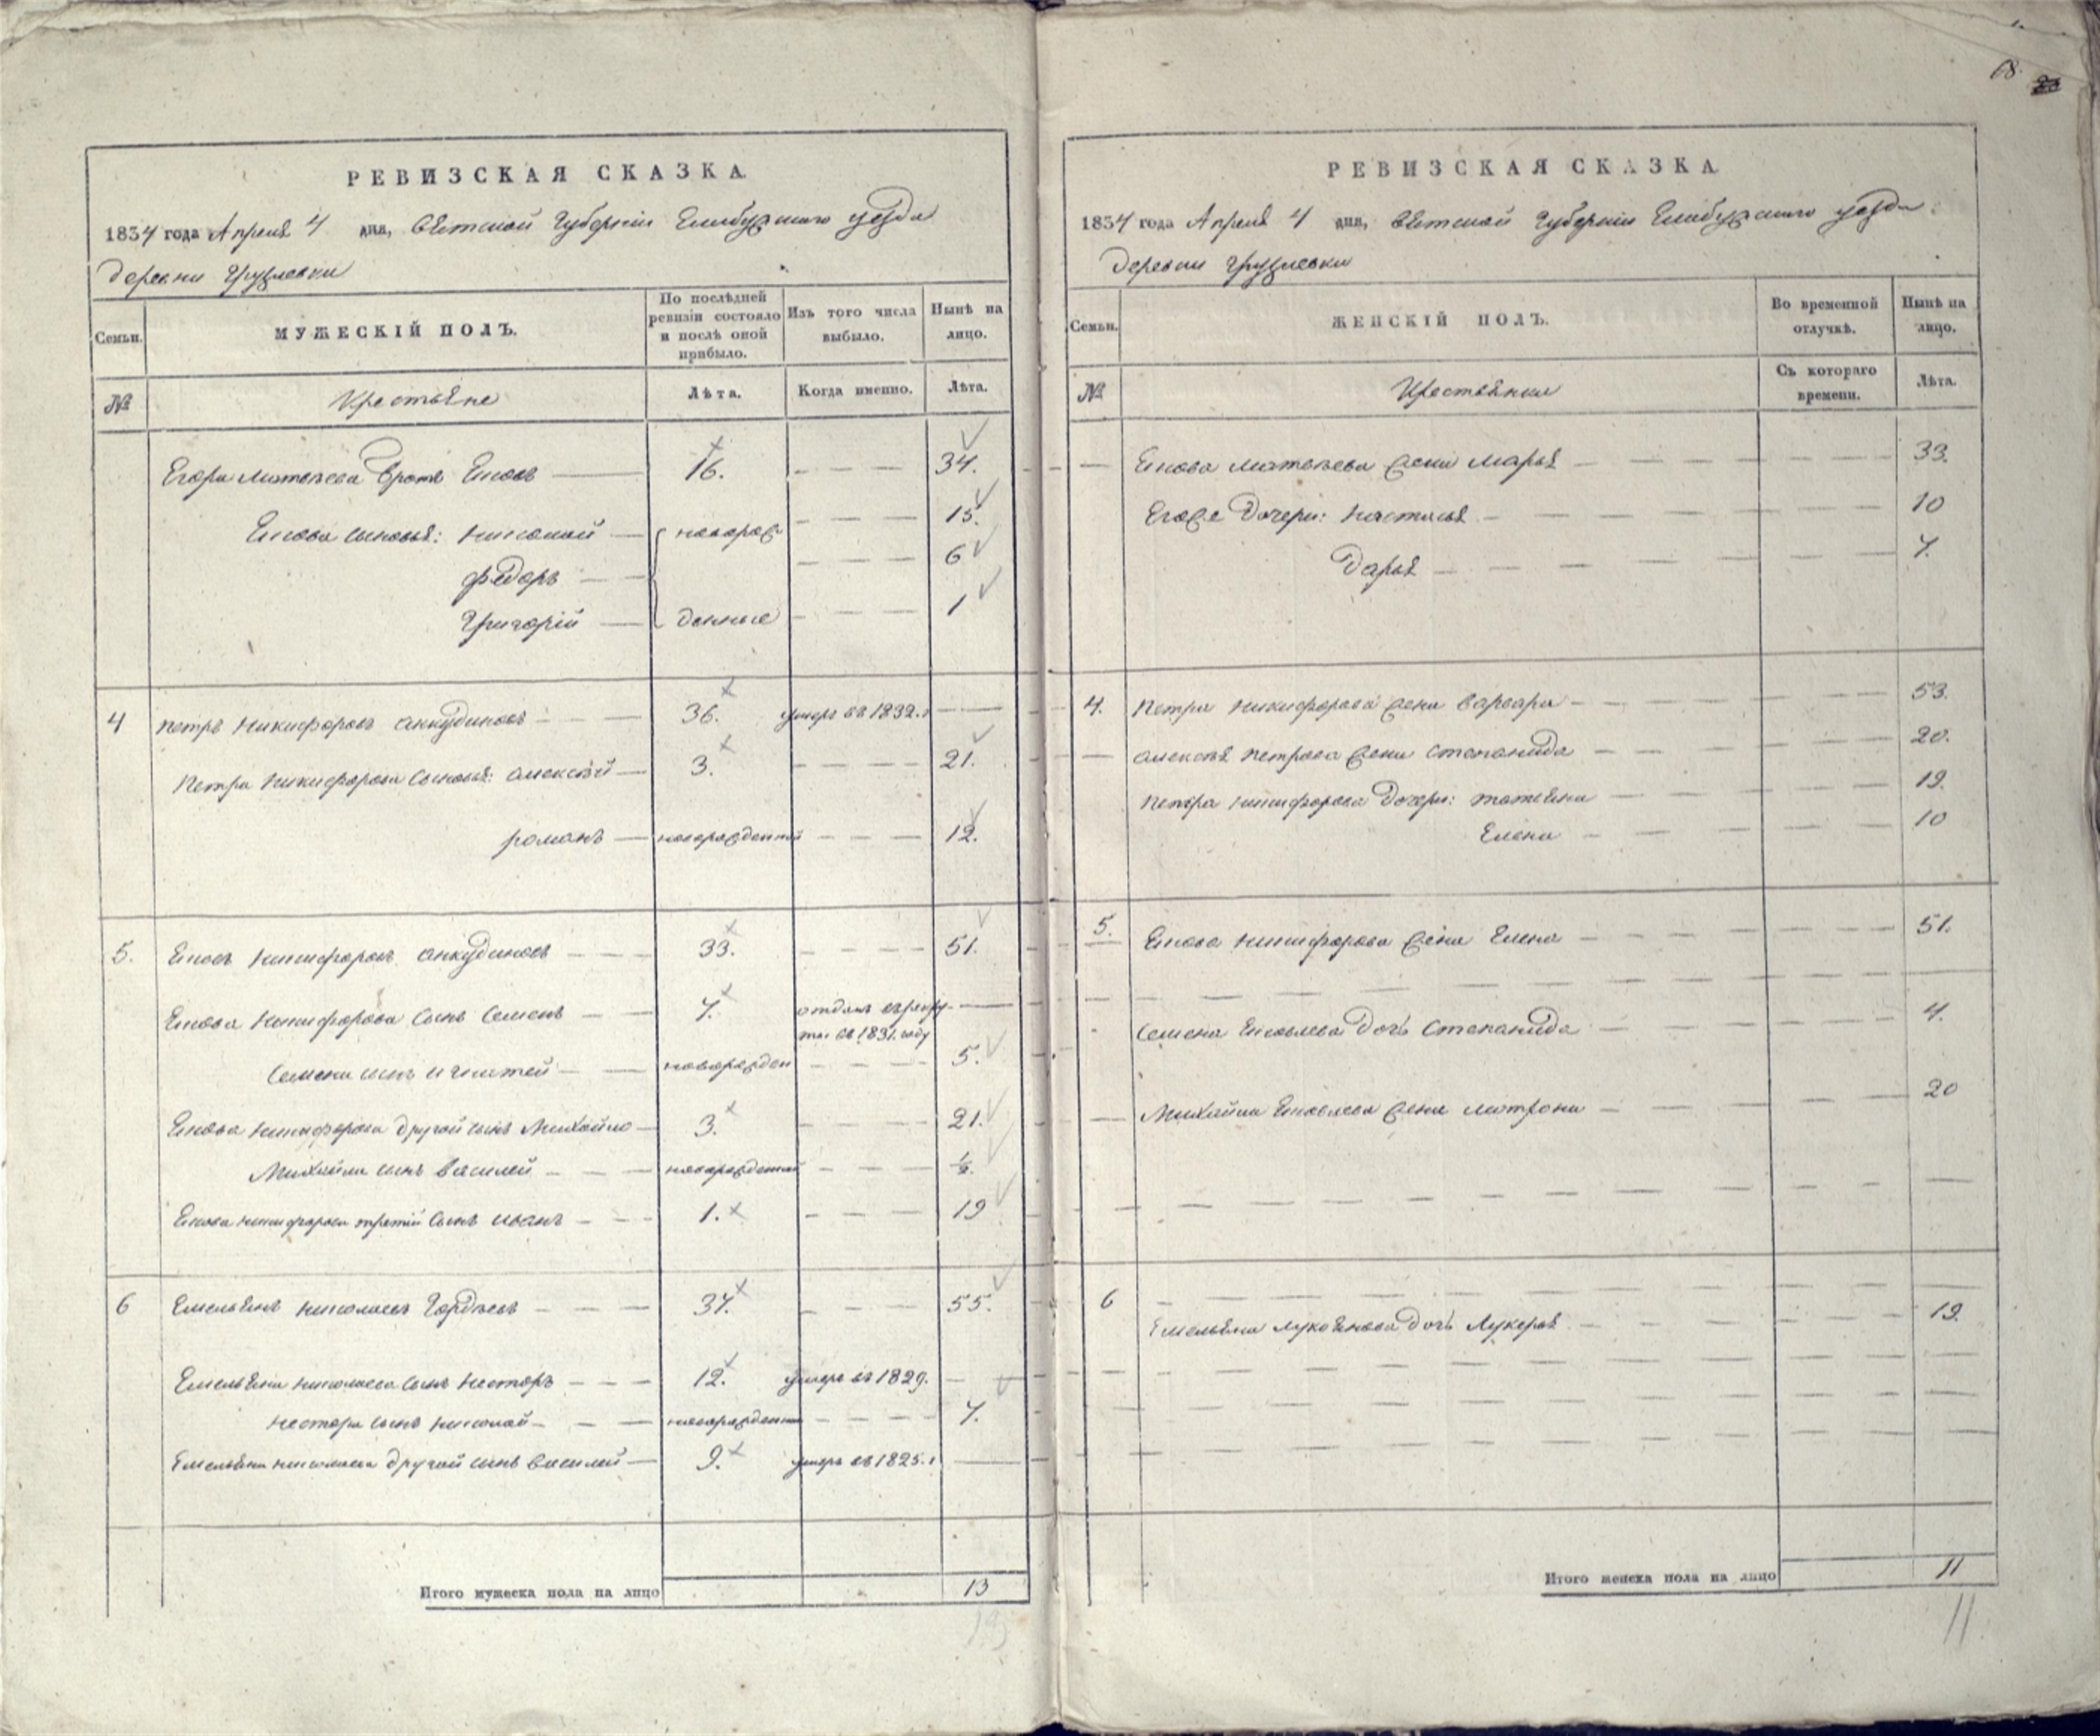 68.
РЕВИЗСКАЯ СКАЗКА.
1834 года Апреля 4 дня, Вятской Губерніи Елабужскаго уезда
деревни
Семьи.
МУЖЕСКІЙ ПОЛЪ.
По послѣдней ревизіи состояло и послѣ оной прибыло.
Изъ того числа выбыло.
Нынѣ на лицо.
№
Крестьяне
Лѣта.
Когда именно.
Лѣта.
Егора Матвѣева братъ Яковъ 16. 34.
Якова сыновья: Николай новорож 15.
Федоръ 6
Григорій денные 1
4 Петръ Никифоровъ Анкудиновъ 36. умеръ въ 1832.
Петра Никифорова сыновья: Алексѣй 3. 21.
Романъ новорожденной 12.
5. Яковъ Никифоровъ Анкудиновъ 33. 51.
Якова Никифорова сынъ Семенъ 7. отданъ въ рекру-
ты въ 1831. году
Семена сынъ Игнатей новорожден 5.
Якова Никифорова другой сынъ Михайло 3. 21.
Михайла сынъ Василей новорожденной 1/2
Якова Никифорова третій сынъ Иванъ 1. 19
6 Емельянъ Николаевъ Гордѣевъ 37. 55.
Емельяна Николаева сынъ Несторъ 12. умеръ въ 1829.
Нестора сынъ Николай новорожденны 7.
Емельяна Николаева другой сынъ Василей 9. умеръ въ 1825.
Итого мужеска пола на лицо 13
13
РЕВИЗСКАЯ СКАЗКА.
1834 года Апреля 4 дня, Вятской Губерніи Елабужскаго уезда
Деревни
Семьи.
ЖЕНСКІЙ ПОЛЪ.
Во временной отлучкѣ.
Нынѣ на лицо.
№
Крестьянки
Съ котораго времени.
Лѣта.
Якова Матвѣева жена Марья 33.
Егоже дочери: Настасья 10
Дарья 7.
4. Петра Никифорова жена Варвара 53.
Алексѣя Петрова жена Степанида 20.
Петра Никифорова дочери: Татьяна 19.
Елена 10
5. Якова Никифорова жена Елена 51.
Семена Яковлева дочь Степанида 4.
Михайла Яковлева жена Матрона 20
6
Емельяна дочь Лукерья 19.
Итого женска пола на лицо 11
11